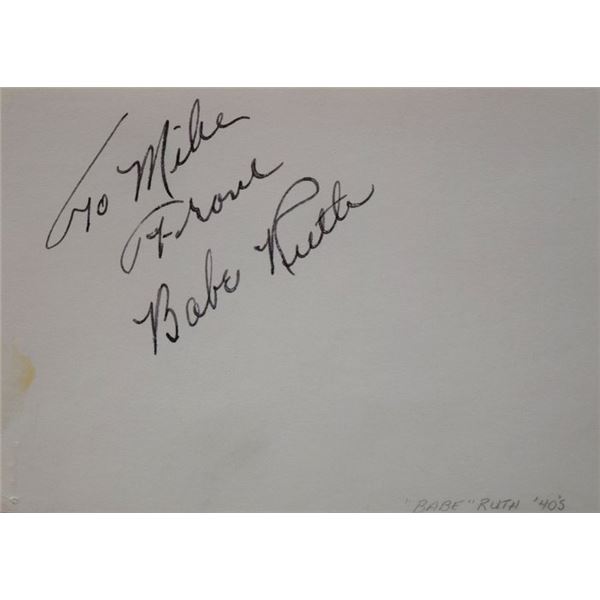 To Mike
From
Babe Ruth
"BABE" RUTH '40'S